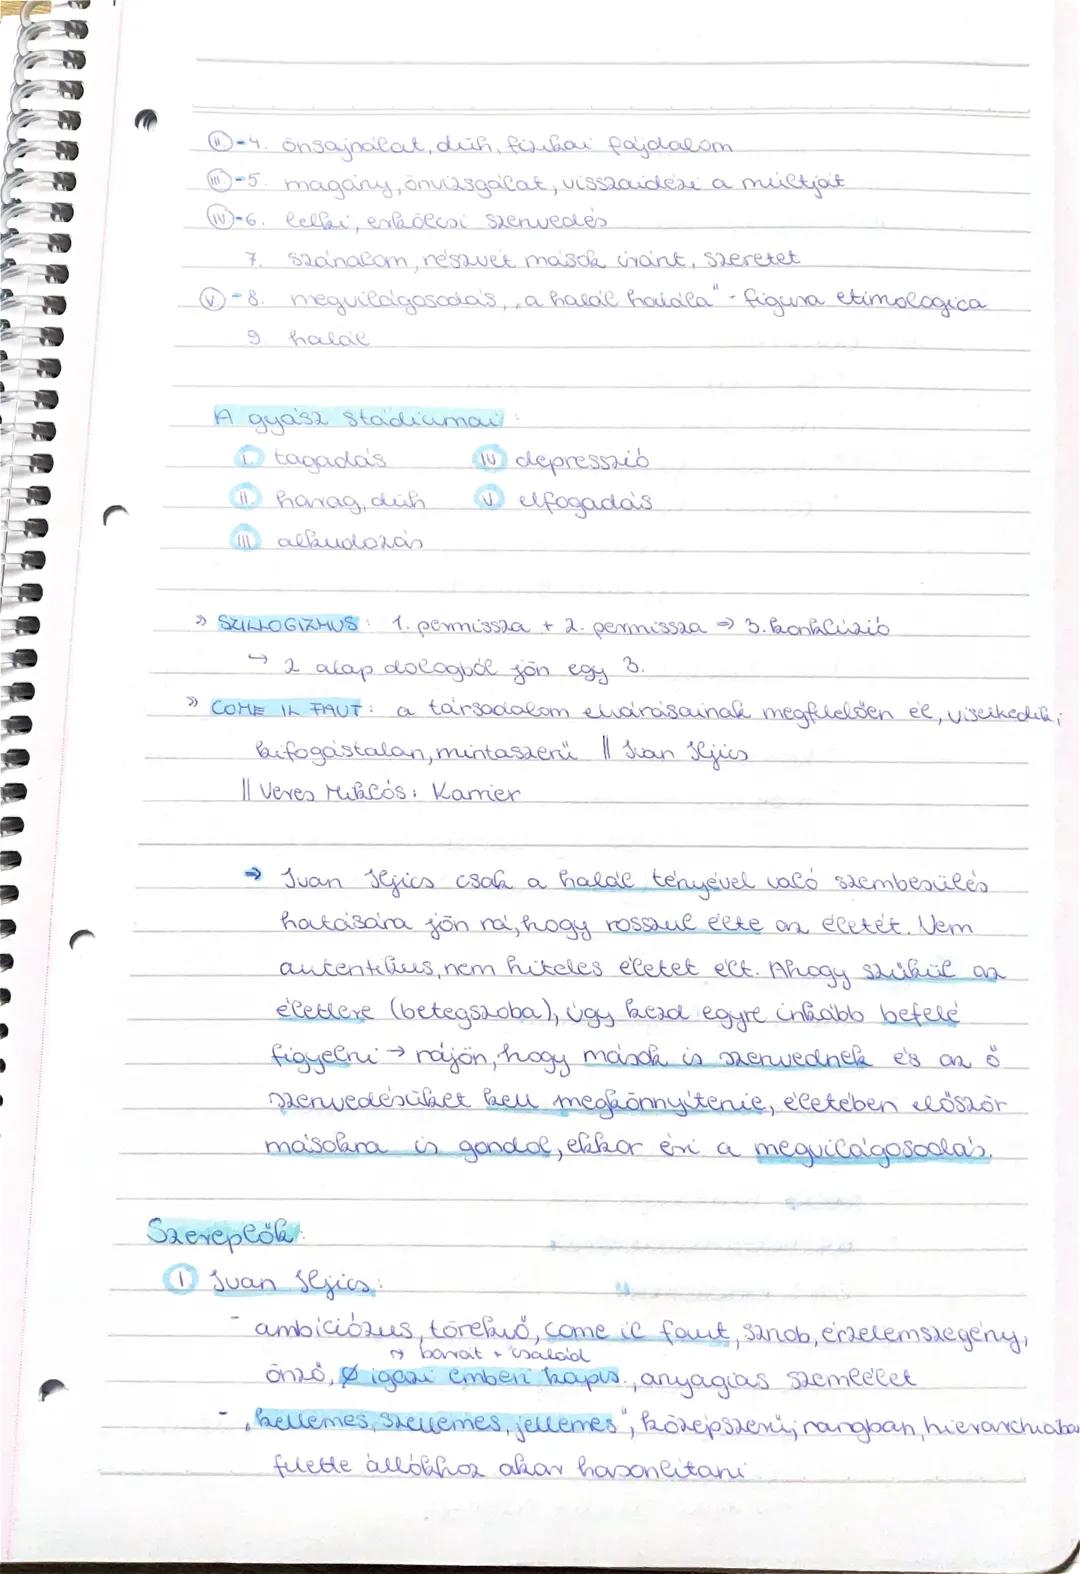 II.-4. önsajnálat, düh, fizikai fájdalom
III-5. magány, önvizsgálat, visszaidézi a múltját
IV-6. lelki, erkölcsi szenvedés
7. szánalom, részvét mások iránt, szeretet
V-8. megvilágosodás, „a halál halála" - figura etimologica
9. halál
A gyász stádiumai:
I. tagadás IV depresszió
II. harag, düh V elfogadás
III alkudozás
» SZILLOGIZMUS: 1. permissza + 2. permissza ⇒ 3. konklúzió
↪ 2 alap dologból jön egy 3.
» COME IL FAUT: a társadalom elvárásainak megfelelően él, viselkedik;
kifogástalan, mintaszerű || Ivan Iljics
|| Veres Miklós: Karrier
⇒ Ivan Iljics csak a halál tényével való szembesülés
hatására jön rá, hogy rosszul élte az életét. Nem
autentikus, nem hiteles életet élt. Ahogy szűkül az
élettere (betegszoba), úgy kezd egyre inkább befelé
figyelni → rájön, hogy mások is szenvednek és az ő
szenvedésüket kell megkönnyítenie, életében először
másokra is gondol, ekkor éri a megvilágosodás.
Szereplők:
1 Ivan Iljics:
- ambíciózus, törekvő, come il faut, sznob, érzelemszegény,
→ barát + család
önző, Ø igazi emberi kapcs., anyagias szemlélet
- „kellemes, szellemes, jellemes", középszerű; rangban, hierarchiában
felette állókhoz akar hasonlítani